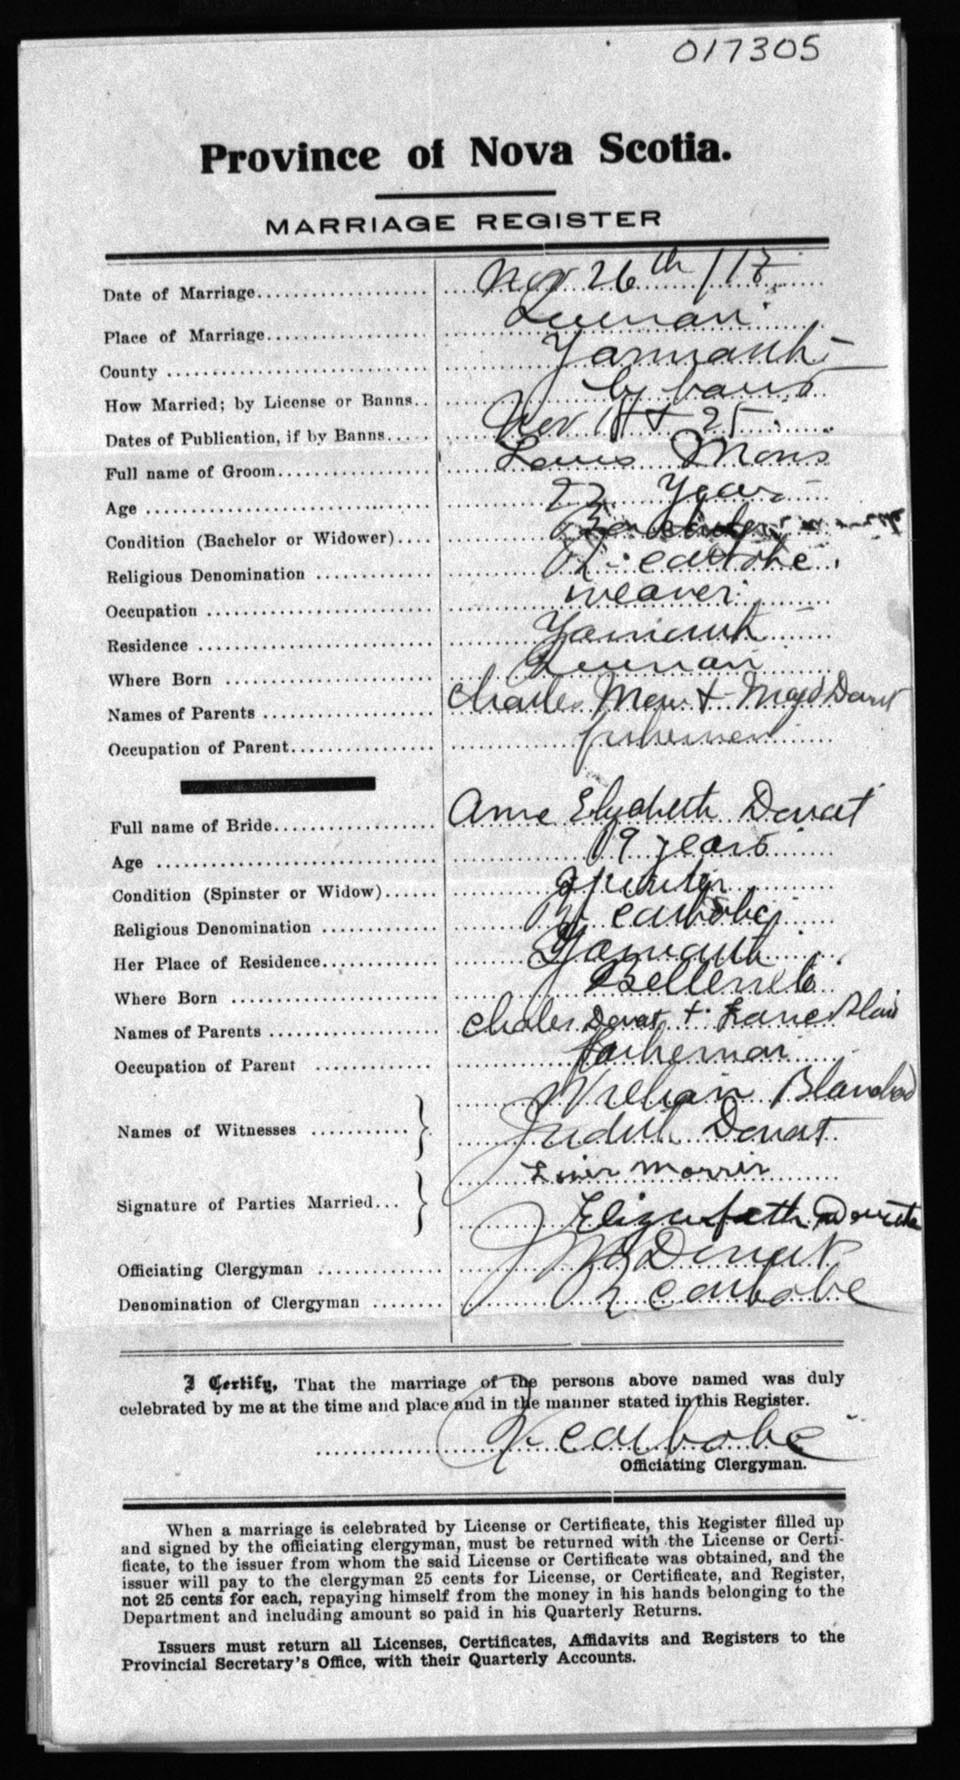 017305
Province of Nova Scotia.
MARRIAGE REGISTER
Date of Marriage Nov 26th / 17
Place of Marriage
County Yarmouth
How Married; by License or Banns by bans
Dates of Publication, if by Banns Nov 18 + 25
Full name of Groom Louis
Age 22 Years
Condition (Bachelor or Widower)
Religious Denomination R. catholic
Occupation weaver
Residence Yarmouth
Where Born
Names of Parents Charles
Occupation of Parent fisherman
Full name of Bride Anne Elizabeth
Age 19 years
Condition (Spinster or Widow) Spinster
Religious Denomination R. catholic
Her Place of Residence Yarmouth
Where Born
Names of Parents Charles
Occupation of Parent fisherman
Names of Witnesses William
Judith
Signature of Parties Married
Elizabeth
Officiating Clergyman
Denomination of Clergyman R catholic
I Certify, That the marriage of the persons above named was duly
celebrated by me at the time and place and in the manner stated in this Register.
R catholic
Officiating Clergyman.
When a marriage is celebrated by License or Certificate, this Register filled up
and signed by the officiating clergyman, must be returned with the License or Certi-
ficate, to the issuer from whom the said License or Certificate was obtained, and the
issuer will pay to the clergyman 25 cents for License, or Certificate, and Register,
not 25 cents for each, repaying himself from the money in his hands belonging to the
Department and including amount so paid in his Quarterly Returns.
Issuers must return all Licenses, Certificates, Affidavits and Registers to the
Provincial Secretary's Office, with their Quarterly Accounts.